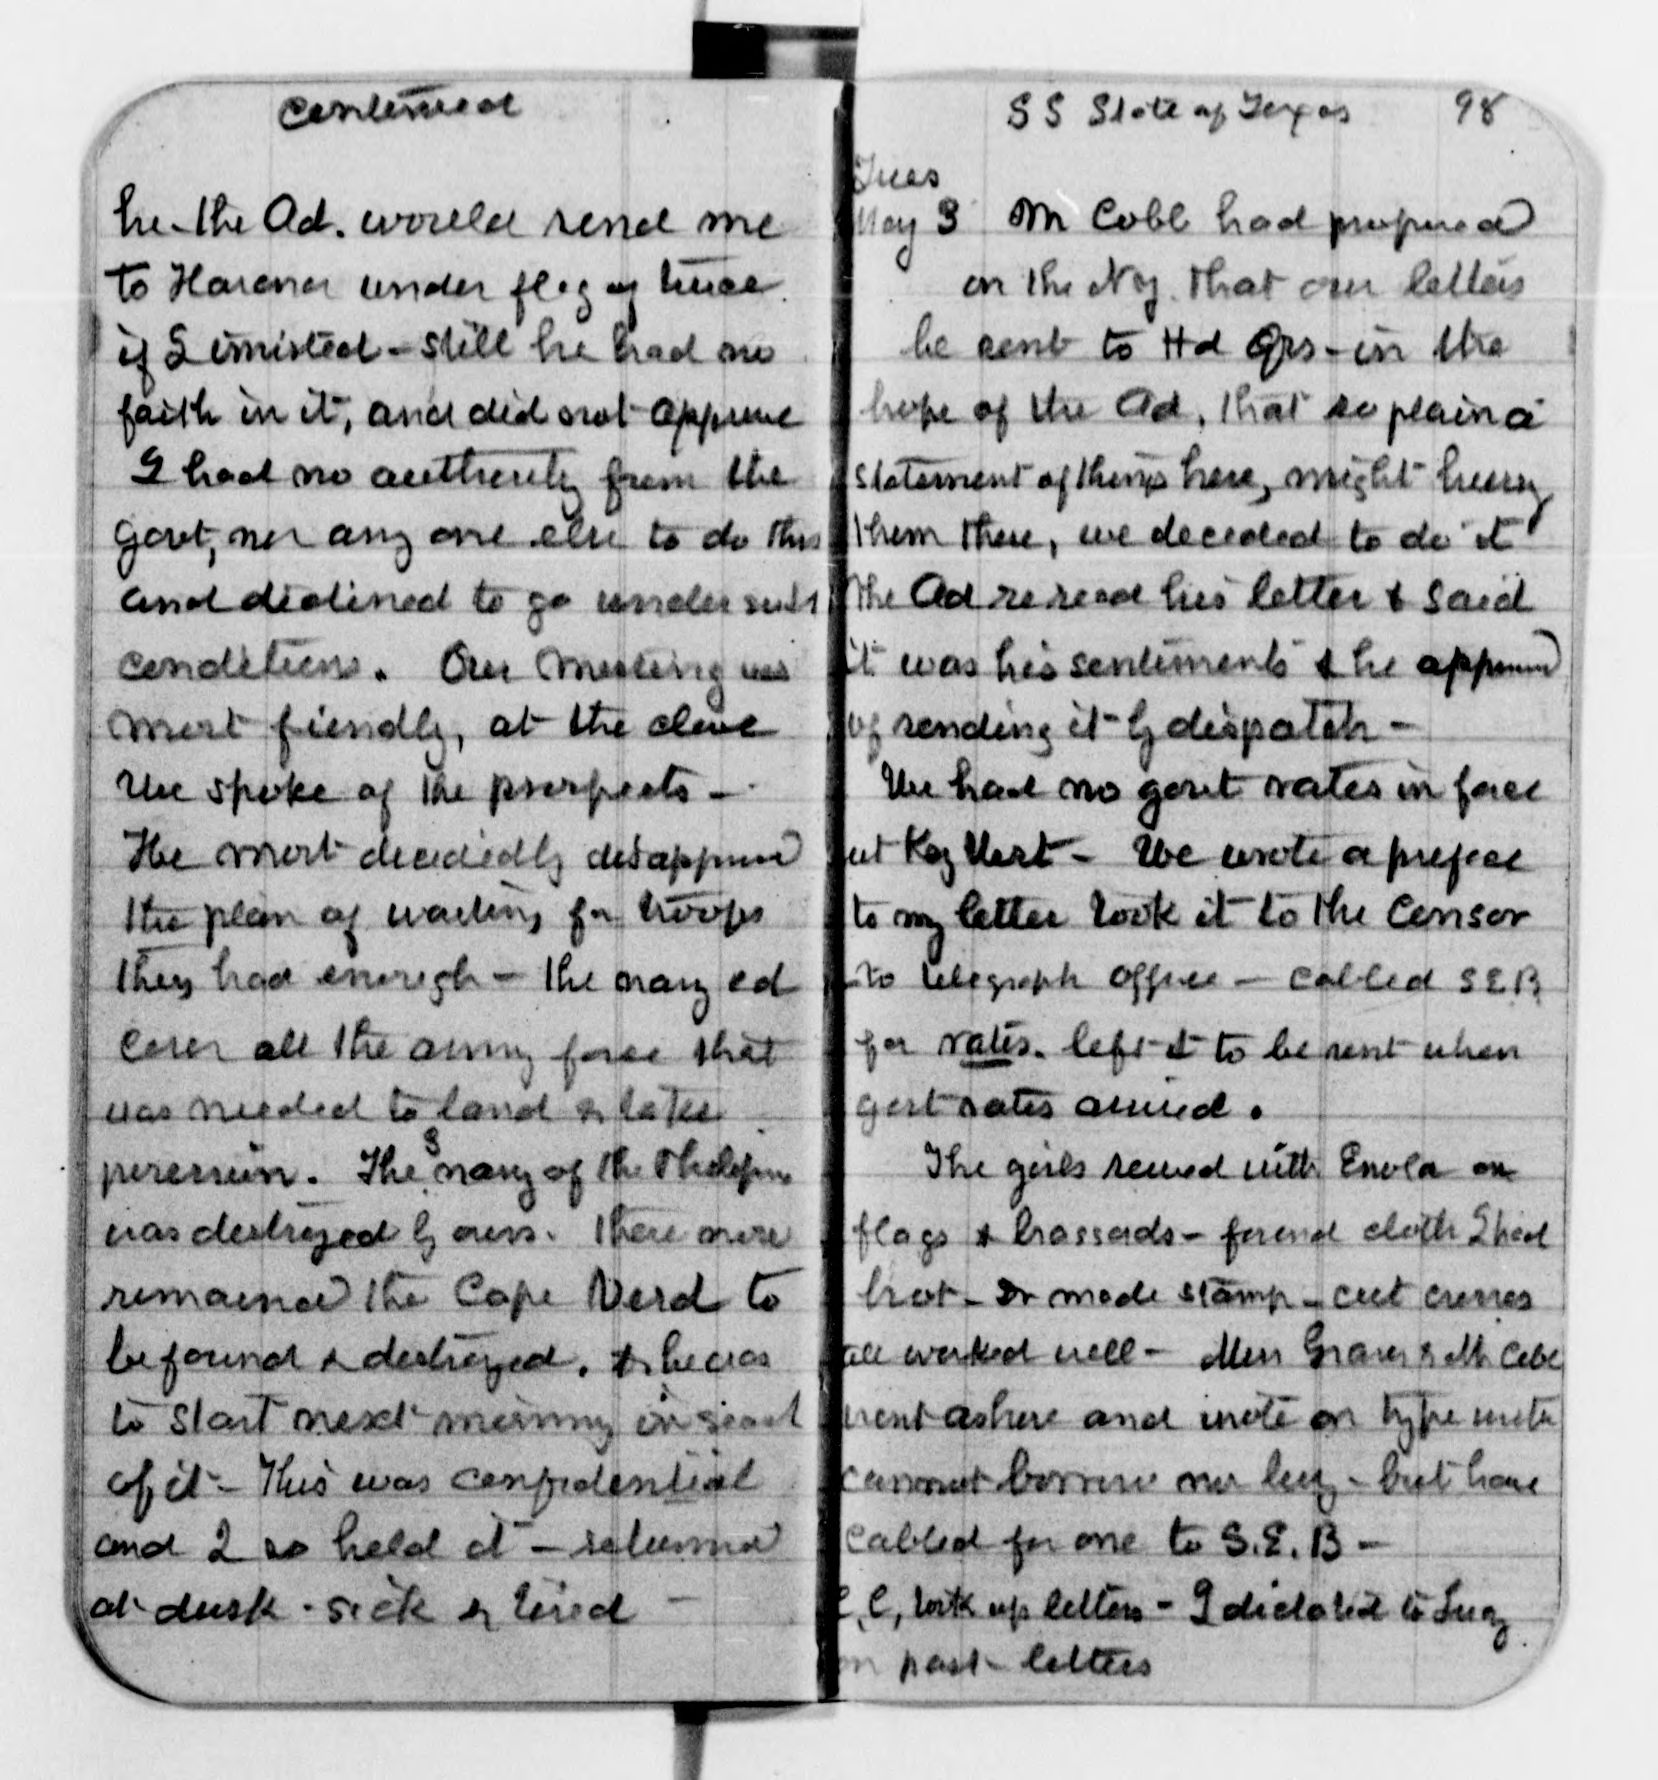 continued
he - the Ad. would send me
to Havana under flag of truce
if I insisted - still he had no
faith in it, and did not approve
I had no authority from the
Govt, nor any one else to do this
and declined to go under such
conditions. Our meeting was
most friendly, at the close
We spoke of the prospects -
He most decidedly disapproved
the plan of waiting for troops
they had enough - the navy cd
cover all the army force that
was needed to land & take
possession. The S navy of the Philipins
was destroyed by ours. There now
remained the Cape Verd to
be found & destroyed. & he was
to start next morning in search
of it - This was confidential
and I so held it - returned
at dusk - sick & tired -
S S State of Texas 98
Tues
May 3 Mr Cobb had proposed
on the N.Y. that our letters
be sent to Hd Qrs - in the
hope of the Ad, that so plain a
statement of things here, might hurry
them there, we decided to do it
The Ad re read his letter & said
it was his sentiments & he approved
of sending it by dispatch -
We had no govt rates in force
at Key West - We wrote a preface
to my letter took it to the Censor
to telegraph office - cabled S E B
for rates. left it to be sent when
govt rates arrived.
The girls sewed with Enola on
flags & brassards - found cloth I had
brot - Dr made stamp - cut crosses
all worked well - Miss Graves & Mr Cobb
went ashore and wrote on type writer
cannot borrow nor buy - but have
cabled for one to S.E.B -
C. C, took up letters - I dictated to Lucy
on past letters